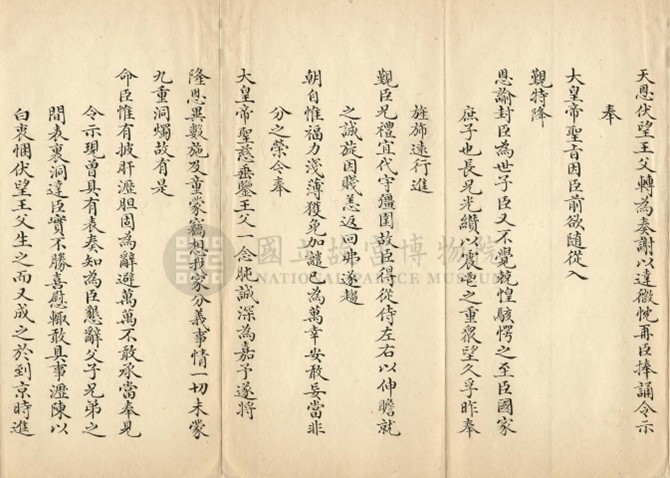 天恩伏望王父轉為奏謝以達微忱再臣捧誦令示
奉
大皇帝聖旨因臣前欲隨從入
覲特降
恩諭封臣為世子臣又不覺兢惶駭愕之至臣國家
庶子也長兄光纘以震宮之重衆望久孚昨奉
旌斾遠行進
覲臣兄禮宜代守疆圉故臣得從侍左右以伸瞻就
之誠旋因賤恙返回弗遂趨
朝自惟福力淺薄獲免加譴已為萬幸安敢妄當非
分之榮令奉
大皇帝聖慈垂鑒王父一念肫誠深為嘉予遂將
隆恩異數施及童蒙竊想我家分義事情一切未蒙
九重洞燭故有是
命臣惟有披肝瀝胆固為辭避萬萬不敢承當奉見
令示現曾具有表奏知為臣懇辭父子兄弟之
間表裏洞達臣實不勝喜慰輙敢具事瀝陳以
白衷悃伏望王父生之而又成之於到京時進
國立故宮博物院
NATIONAL PALACE MUSEUM